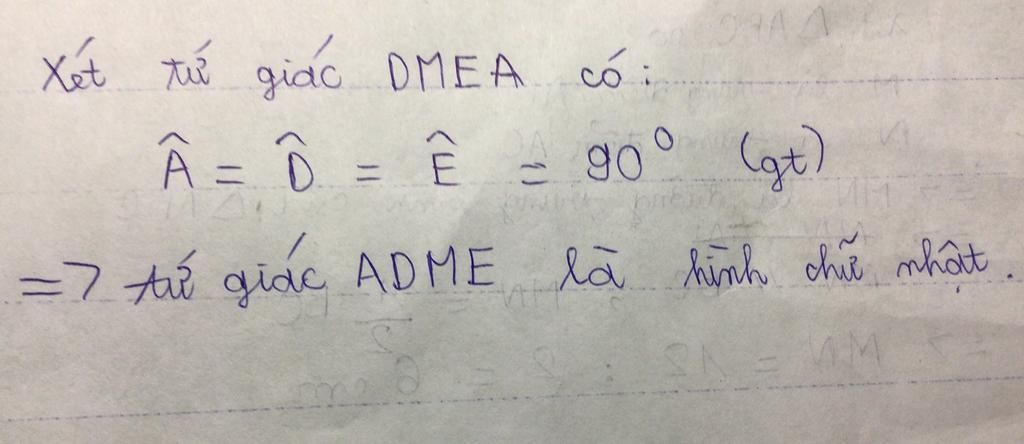 Xét tứ giác DMEA có:
Â = D̂ = Ê = 90⁰ (gt)
=> tứ giác ADME là hình chữ nhật.